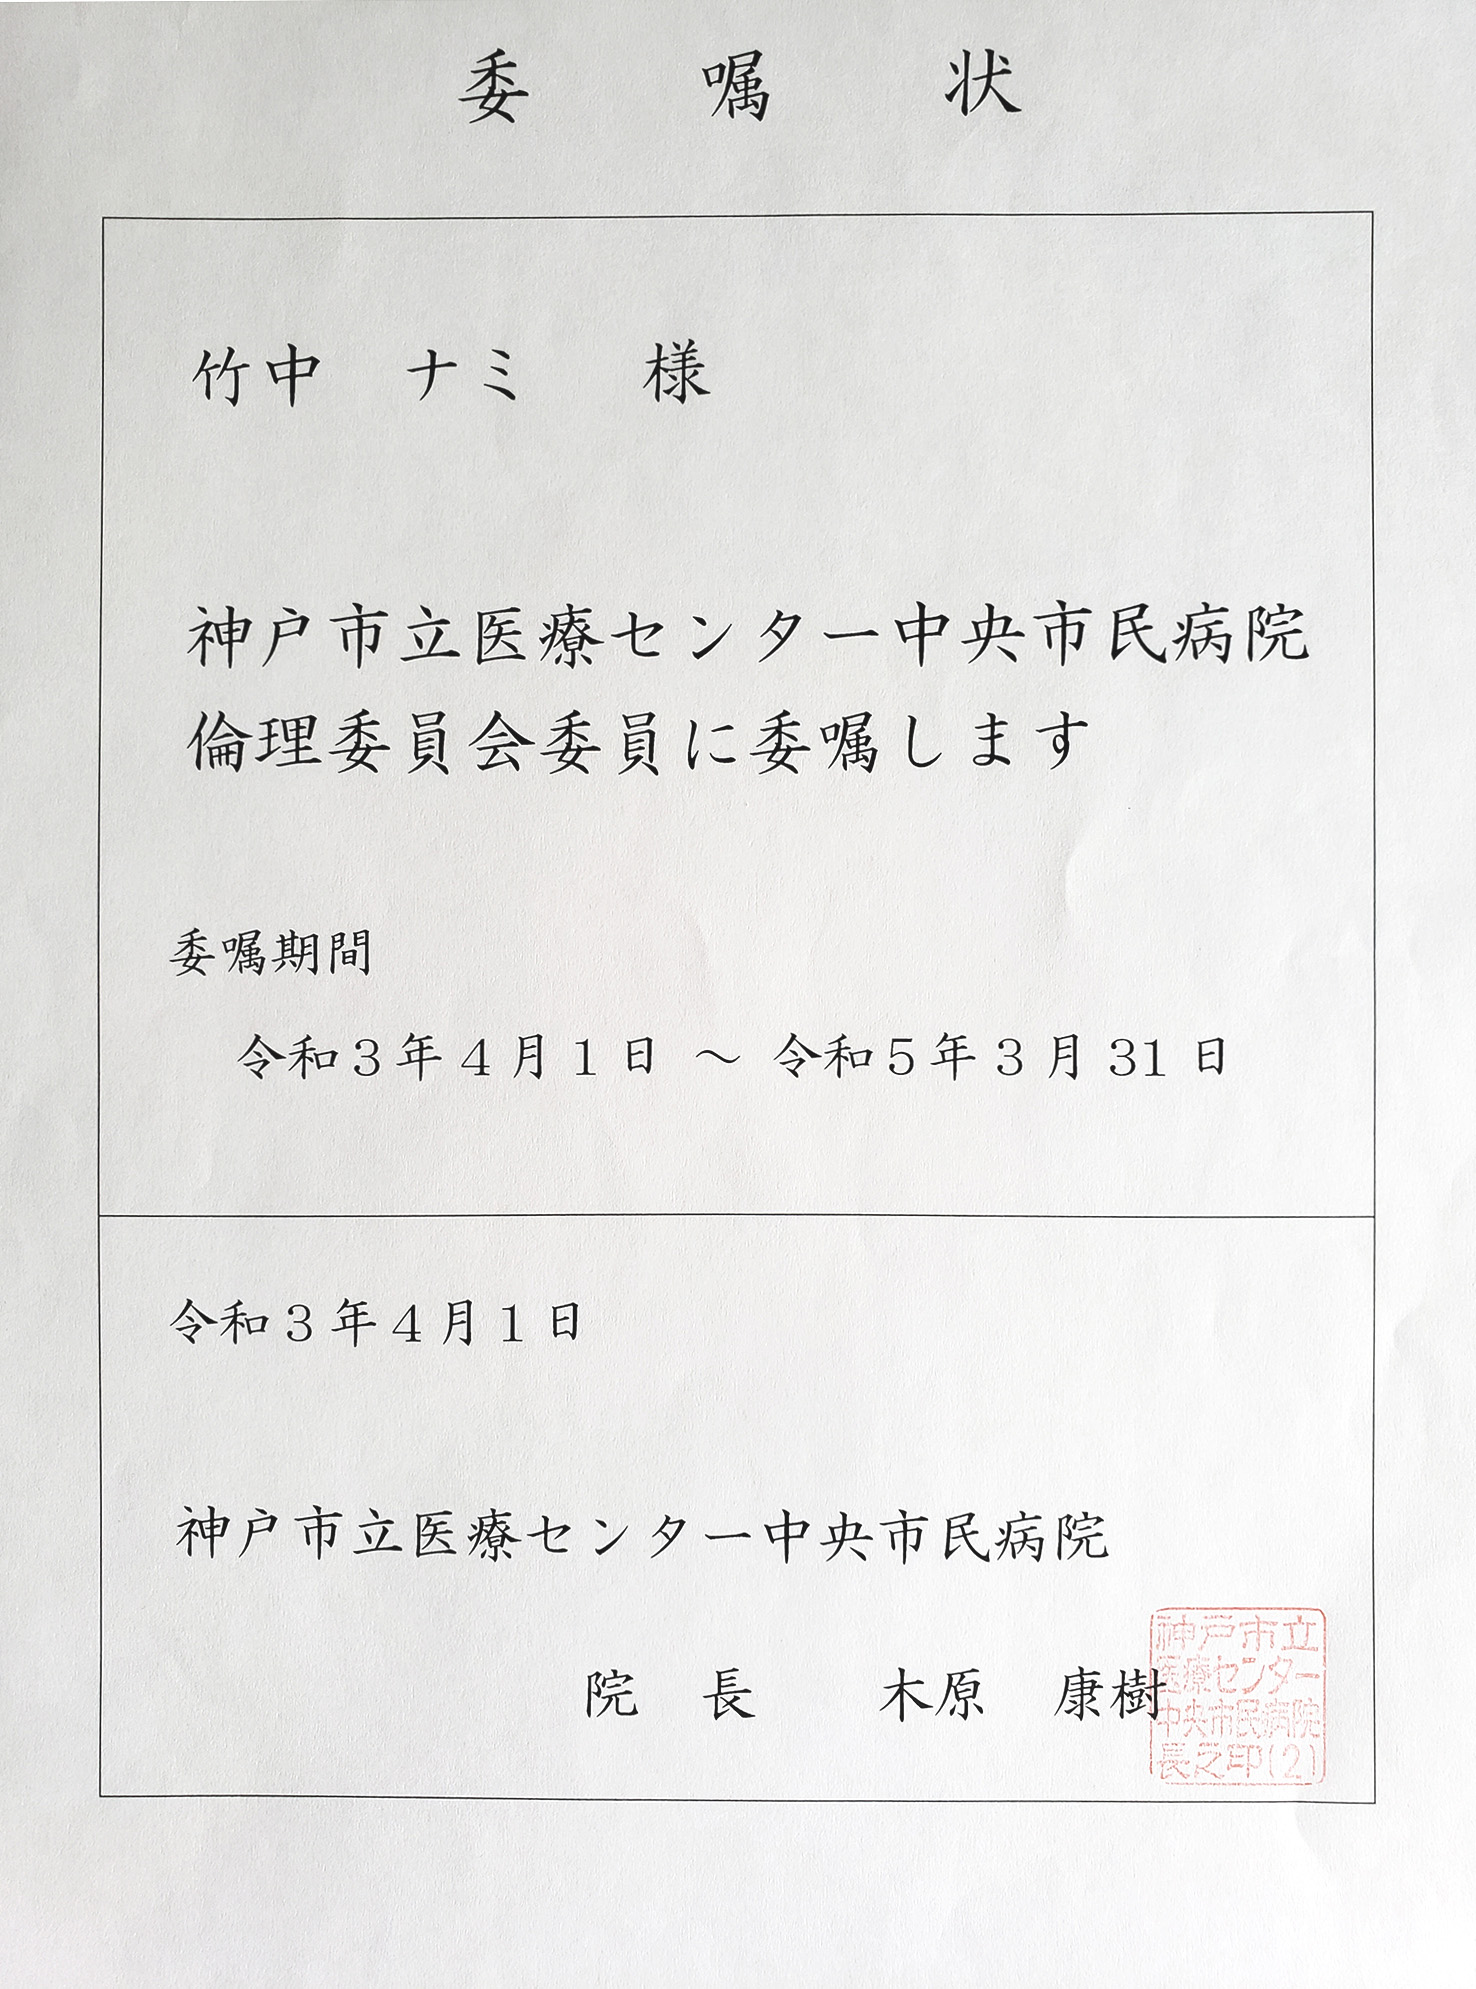 委嘱状
竹中 ナミ 様
神戸市立医療センター中央市民病院
倫理委員会委員に委嘱します
委嘱期間
令和3年4月1日 ～ 令和5年3月31日
令和3年4月1日
神戸市立医療センター中央市民病院
院 長 木原 康樹
神戸市立
医療センター
中央市民病院
長之印(2)